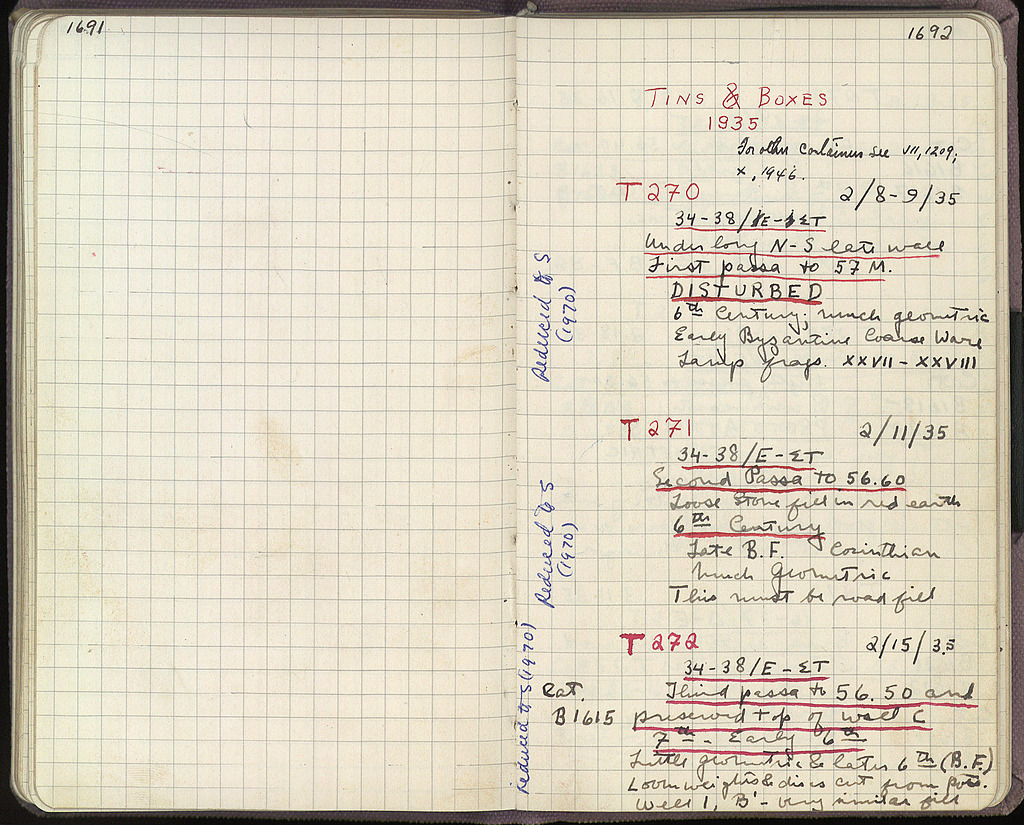 1691
1692
TINS & BOXES
1935
For other containers see VII, 1209;
X, 1946.
T 270 2/8-9/35
34-38/E-ΣΤ
Under long N-S late wall
First passa to 57 M.
DISTURBED
6th Century; much geometric
Early Byzantine Coarse Ware
Lamp frags. XXVII - XXVIII
Reduced to S
(1970)
T 271 2/11/35
34-38/E-ΣΤ
Second Passa to 56.60
Loose Stone fill in red earth
6th Century
Late B.F. Corinthian
Much Geometric
This must be road fill
Reduced to S
(1970)
T 272 2/15/35
34-38/E-ΣΤ
Cat. Third passa to 56.50 and
B1615 preserved top of wall C
7th - Early 6th
Little geometric & later 6th (B.F.)
Loomweights & discs cut from pots.
Well 1, B' - very similar fill
Reduced to S (1970)